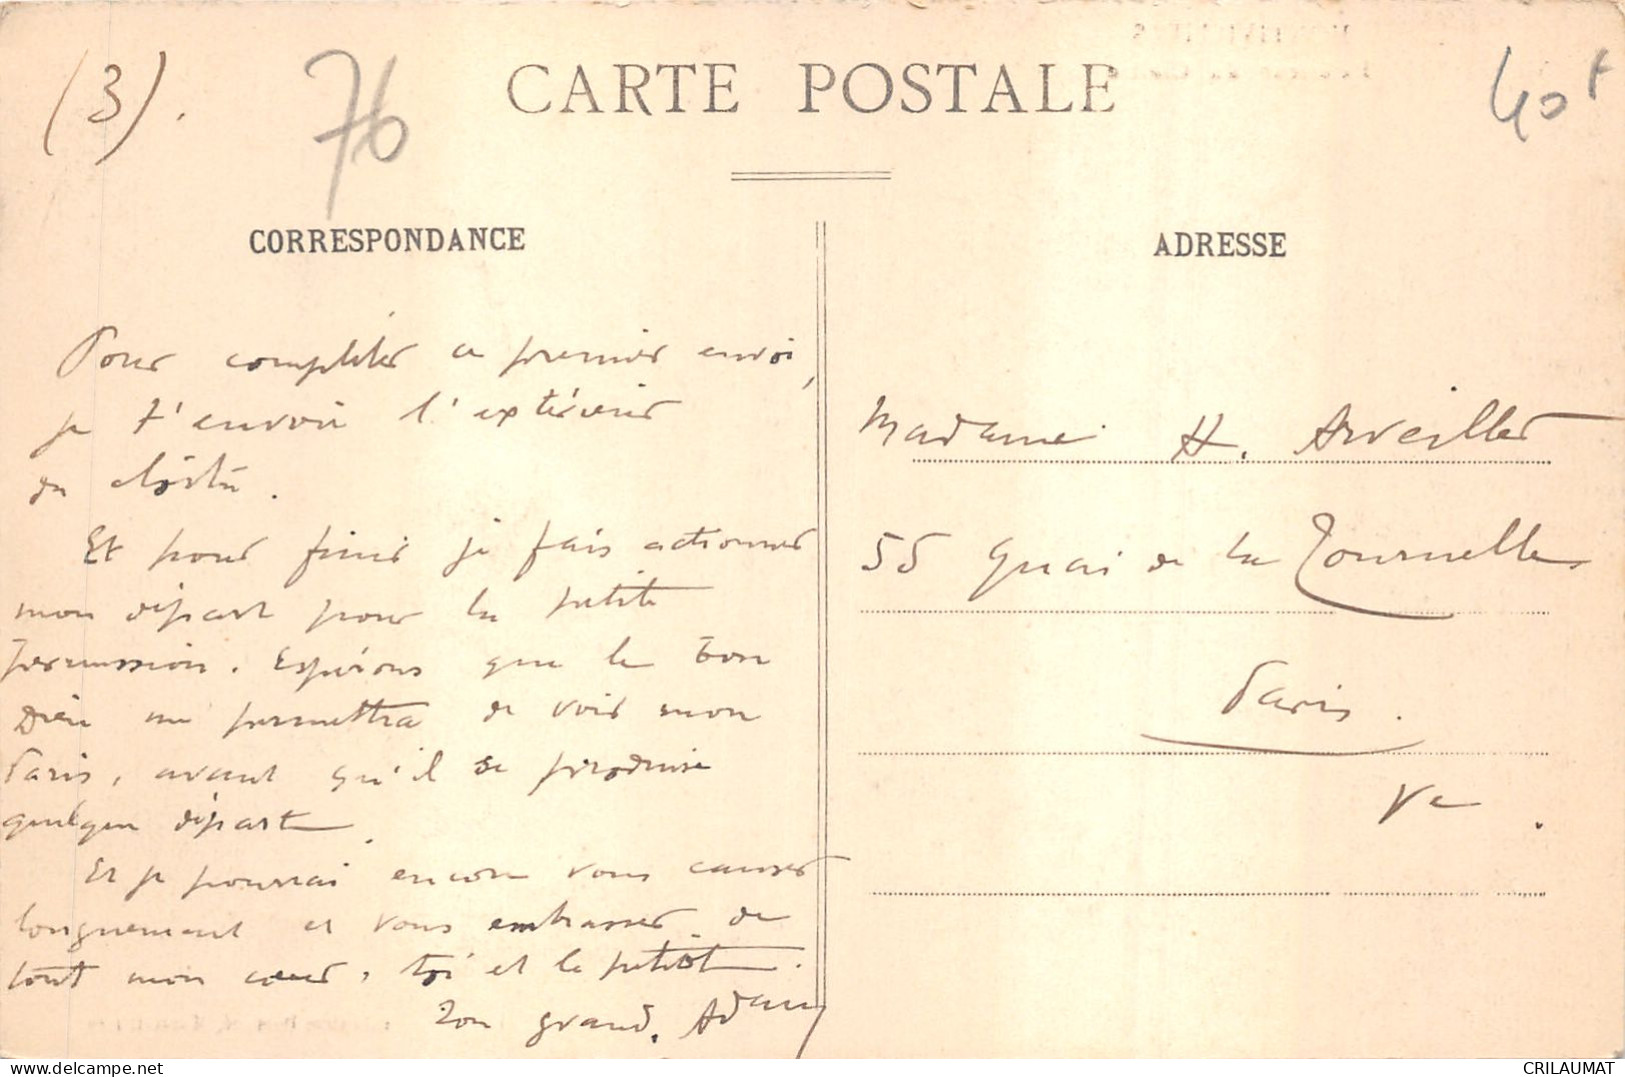 (3).
76
CARTE POSTALE
40F
CORRESPONDANCE
Pour compléter ce premier envoi,
je t'envoie l'extérieur
du cloître.
Et pour finir je fais actionner
mon départ pour la petite
permission. Espérons que le bon
Dieu me permettra de voir mon
Paris, avant qu'il se produise
quelque départ.
Et je pourrai encore vous causer
longuement et vous embrasser de
tout mon cœur, toi et le petiot.
Ton grand. Adam
ADRESSE
Madame H. Arveiller
55 Quai de la Tournelle
Paris.
Ve
delcampe.net
CRILAUMAT